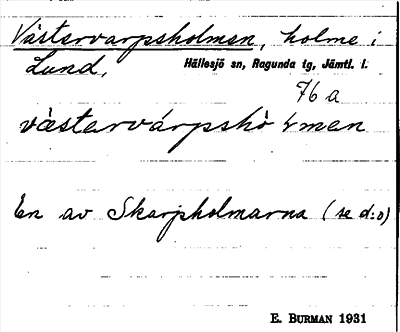 Västervarpsholmen, holme i
Lund, Hällesjö sn, Ragunda tg, Jämtl. l.
76 a
västervárpshò ɫmen
En av Skarpholmarna (se d:o)
E. BURMAN 1931